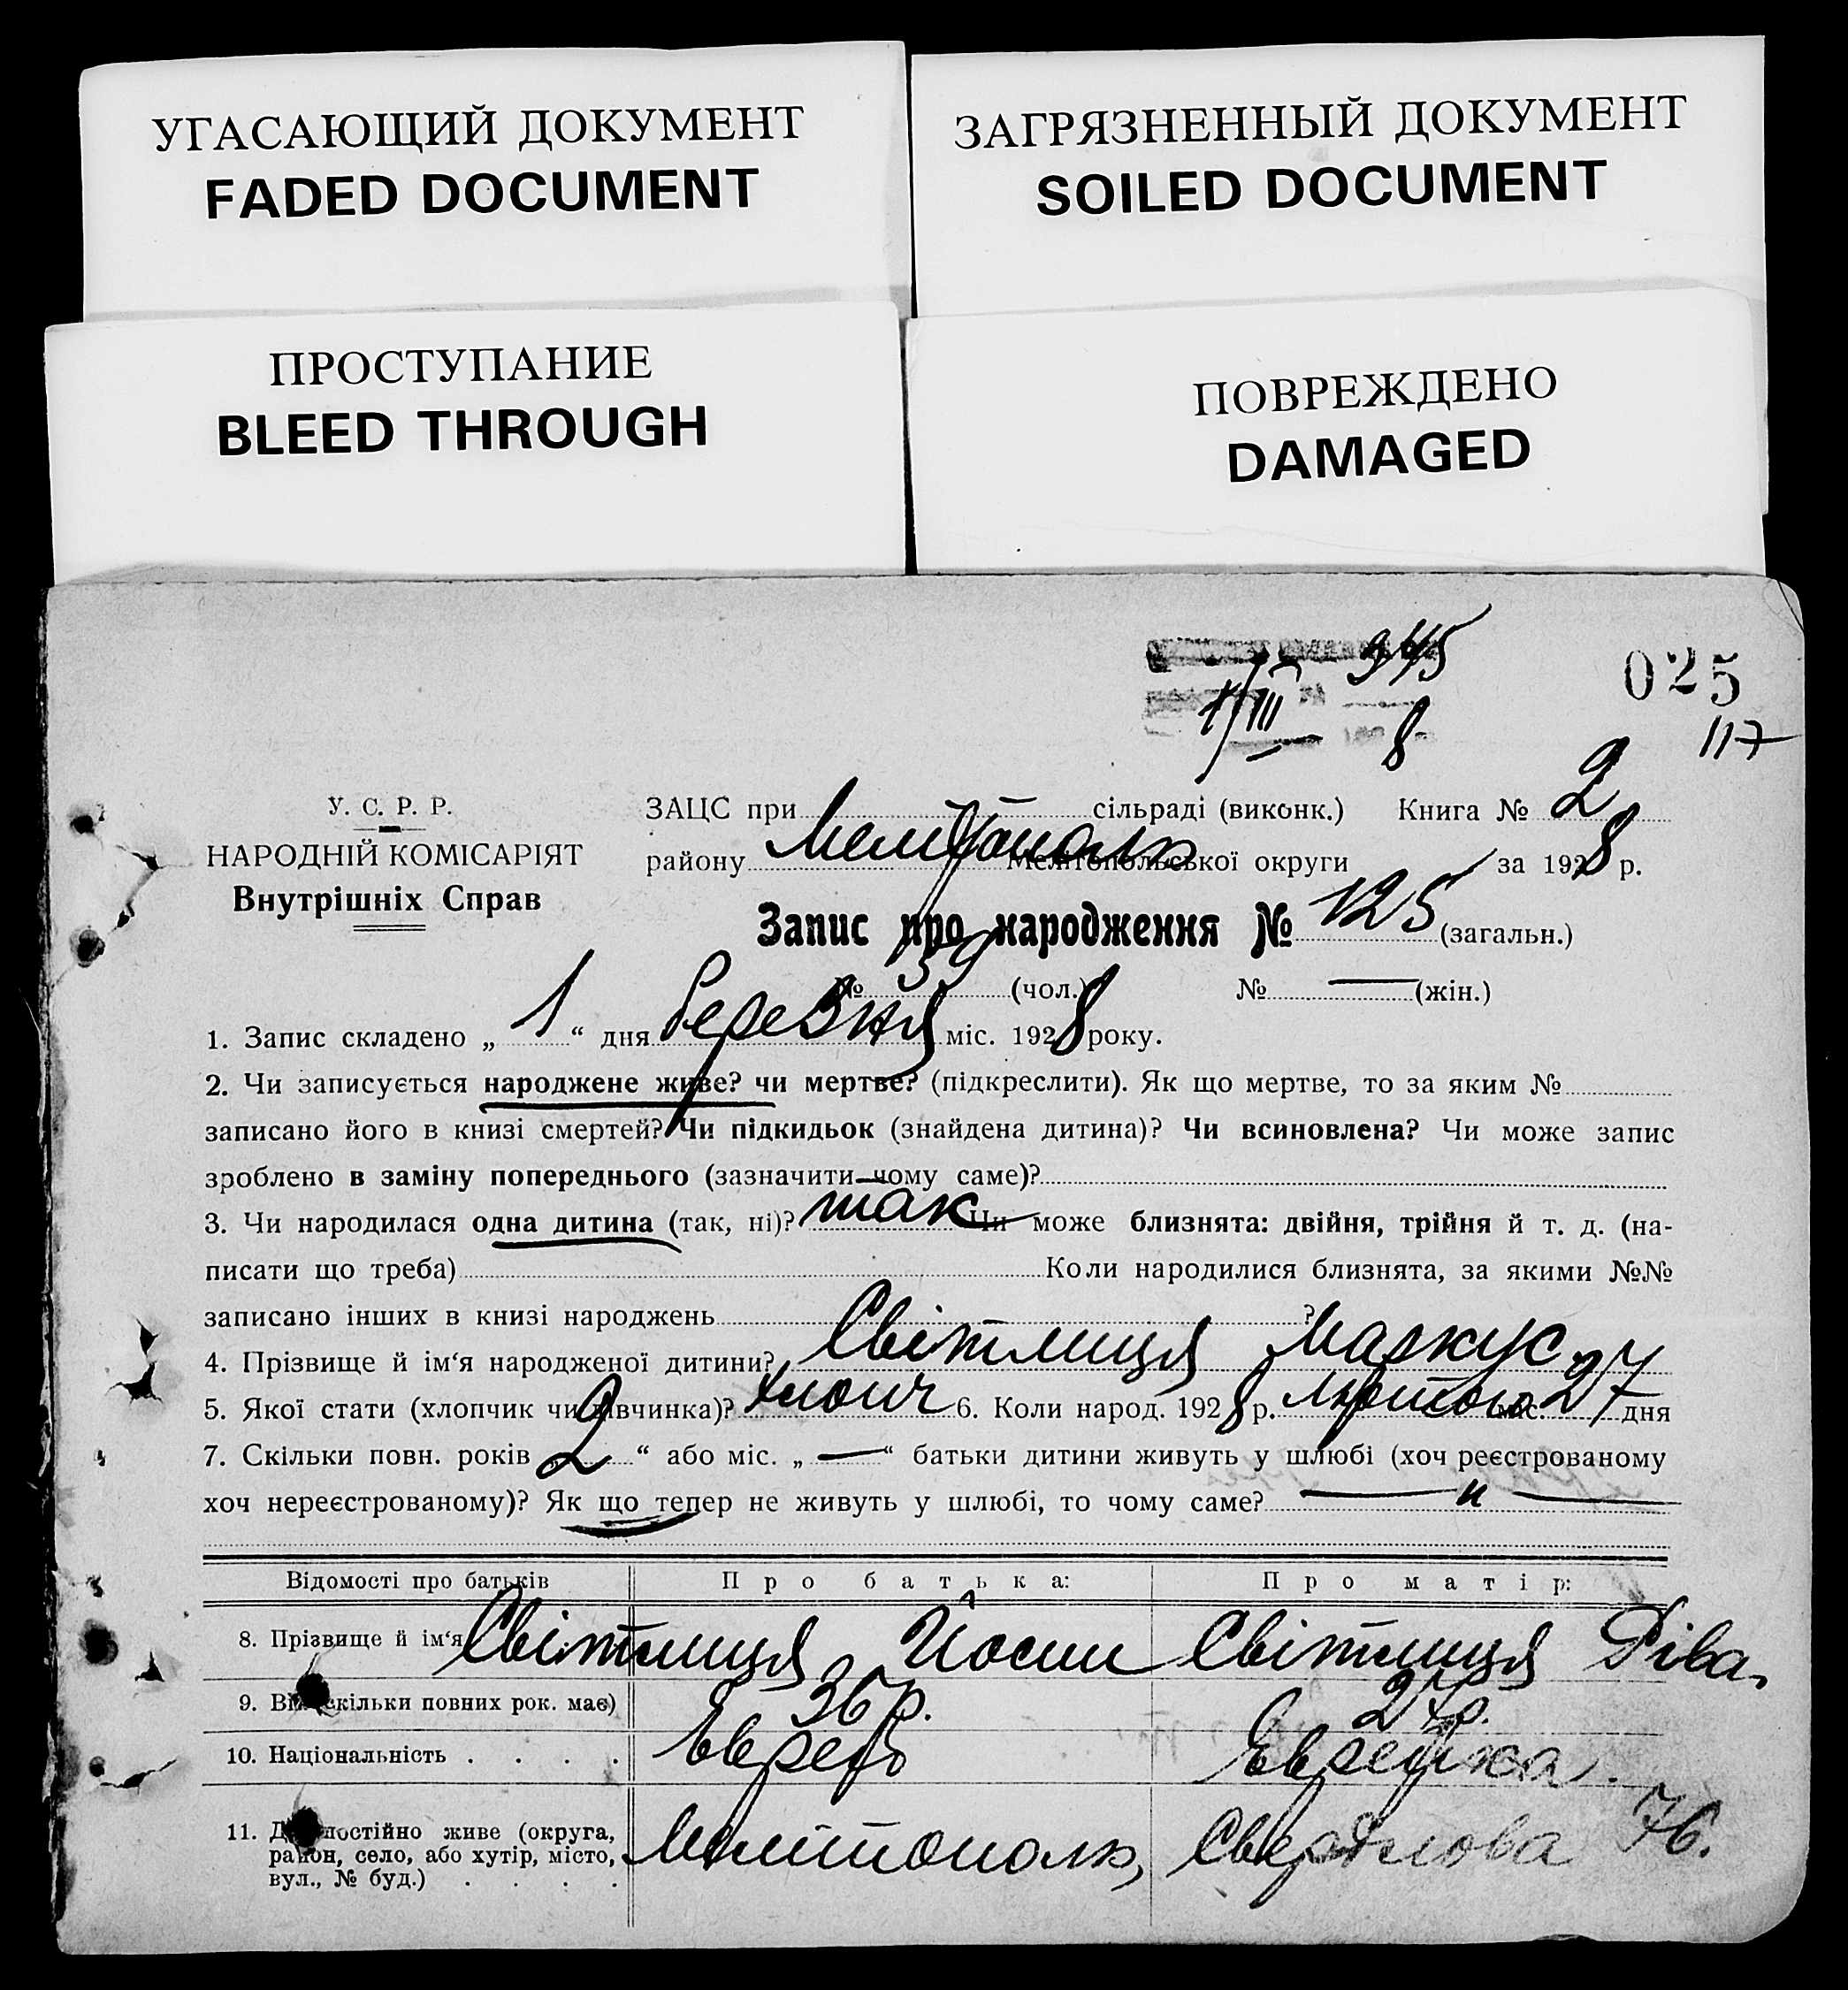 УГАСАЮЩИЙ ДОКУМЕНТ
FADED DOCUMENT
ЗАГРЯЗНЕННЫЙ ДОКУМЕНТ
SOILED DOCUMENT
ПРОСТУПАНИЕ
BLEED THROUGH
ПОВРЕЖДЕНО
DAMAGED
945
1/III 8
025
117
У. С. Р. Р.
НАРОДНІЙ КОМІСАРІЯТ
Внутрішніх Справ
ЗАЦС при — сільраді (виконк.) Книга № 2
району Мелітополь Мелітопольської округи за 1928 р.
Запис про народження № 125 (загальн.)
№ 59 (чол.) № — (жін.)
1. Запис складено „ 1 “ дня березня міс. 1928 року.
2. Чи записується народжене живе? чи мертве? (підкреслити). Як що мертве, то за яким №
записано його в книзі смертей? Чи підкидьок (знайдена дитина)? Чи всиновлена? Чи може запис
зроблено в заміну попереднього (зазначити чому саме)?
3. Чи народилася одна дитина (так, ні)? так Чи може близнята: двійня, трійня й т. д. (на-
писати що треба) Коли народилися близнята, за якими №№
записано інших в книзі народжень ?
4. Прізвище й ім‘я народженої дитини? Світлиця Маркус
5. Якої стати (хлопчик чи дівчинка)? хлопч 6. Коли народ. 1928 р. лютого міс. 27 дня
7. Скільки повн. років „ 2 “ або міс. „ — “ батьки дитини живуть у шлюбі (хоч реєстрованому
хоч нереєстрованому)? Як що тепер не живуть у шлюбі, то чому саме? — „ —
Відомості про батьків Про батька: Про матір:
8. Прізвище й ім‘я Світлиця Йосип Світлиця Ріва
9. Вік (скільки повних рок. має) 36 р. 27 р.
10. Національність . . . . Еврей Еврейка.
11. Де постійно живе (округа,
район, село, або хутір, місто,
вул., № буд.) . . . . Мелітополь, Свердлова 76.